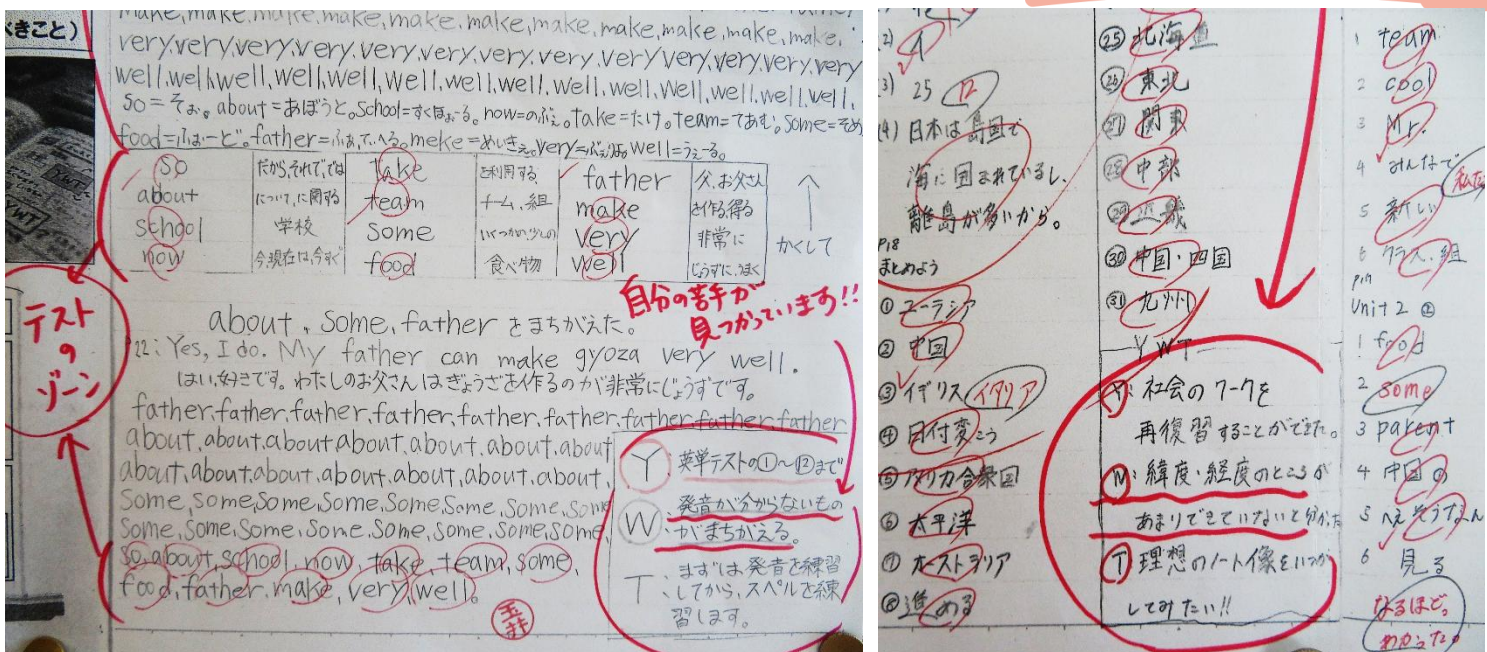 make, make, make, make, make, make, make, make, make, make,
very, very, very, very, very, very, very, very, very, very, very, very
well, well, well, well, well, well, well, well, well, well, well, well,
くきこと)
YWT
so=そお。about=あぼうと。school=すくほぉーる。now=のぶえ。take=たけ。team=てあむ。some=そめ
food=ふぉーど。father=
so
だから、それで、では
take
を利用する
father
父、お父さん
about
について、に関する
team
チーム、組
make
を作る、得る
school
学校
some
いくつかの、少しの
very
非常に
now
今、現在は、今すぐ
food
食べ物
well
じょうずに、うまく
かくして
自分の苦手が
見つかっています!!
テスト
の
ゾーン
about, some, father をまちがえた。
22: Yes, I do. My father can make gyoza very well.
はい、好きです。わたしのお父さんはぎょうざを作るのが非常にじょうずです。
father, father, father, father, father, father, father, father, father
about, about, about about, about, about, about
about, about, about, about, about, about, about,
some, some, some, some, some, some, some, some
some, some, some, some, some, some, some, some,
so, about, school, now, take, team, some,
food, father, make, very, well.
Y 英単テストの①~⑫まで
W 発音が分からないもの
がまちがえる。
T、まずは、発音を練習
してから、スペルを練
習します。
(2) イ
(3) 25 12
(4) 日本は島国で
海に囲まれているし、
離島が多いから。
P18
まとめよう
①ユーラシア
②中国
③イギリス イタリア
④日付変こう
⑤アメリカ合衆国
⑥太平洋
⑦オーストラリア
⑧進める
㉕北海道
㉖東北
㉗関東
㉘中部
㉙近畿
㉚中国・四国
㉛九州
YWT
Y: 社会のワークを
再復習することができた。
M: 緯度・経度のところが
あまりできていないと分かった
T 理想のノート像をいつか
してみたい!!
1 team
2 cool
3 Mr.
4 みんなで
私たち
5 新しい
6 クラス、組
P19
Unit2 ②
1 food
2 some
3 parent
4 中国の
5 へえ、そうなんだ
6 見る
なるほど。
わかった。